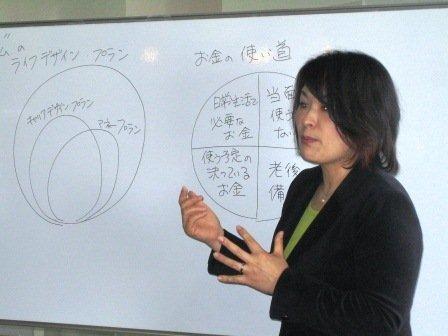 ”ムの
ライフデザイン プラン
キャリアデザインプラン
マネープラン
お金の使い道
日常生活で
必要な
お金
当面
使う
ない
使う予定の
決っている
お金
老後
備